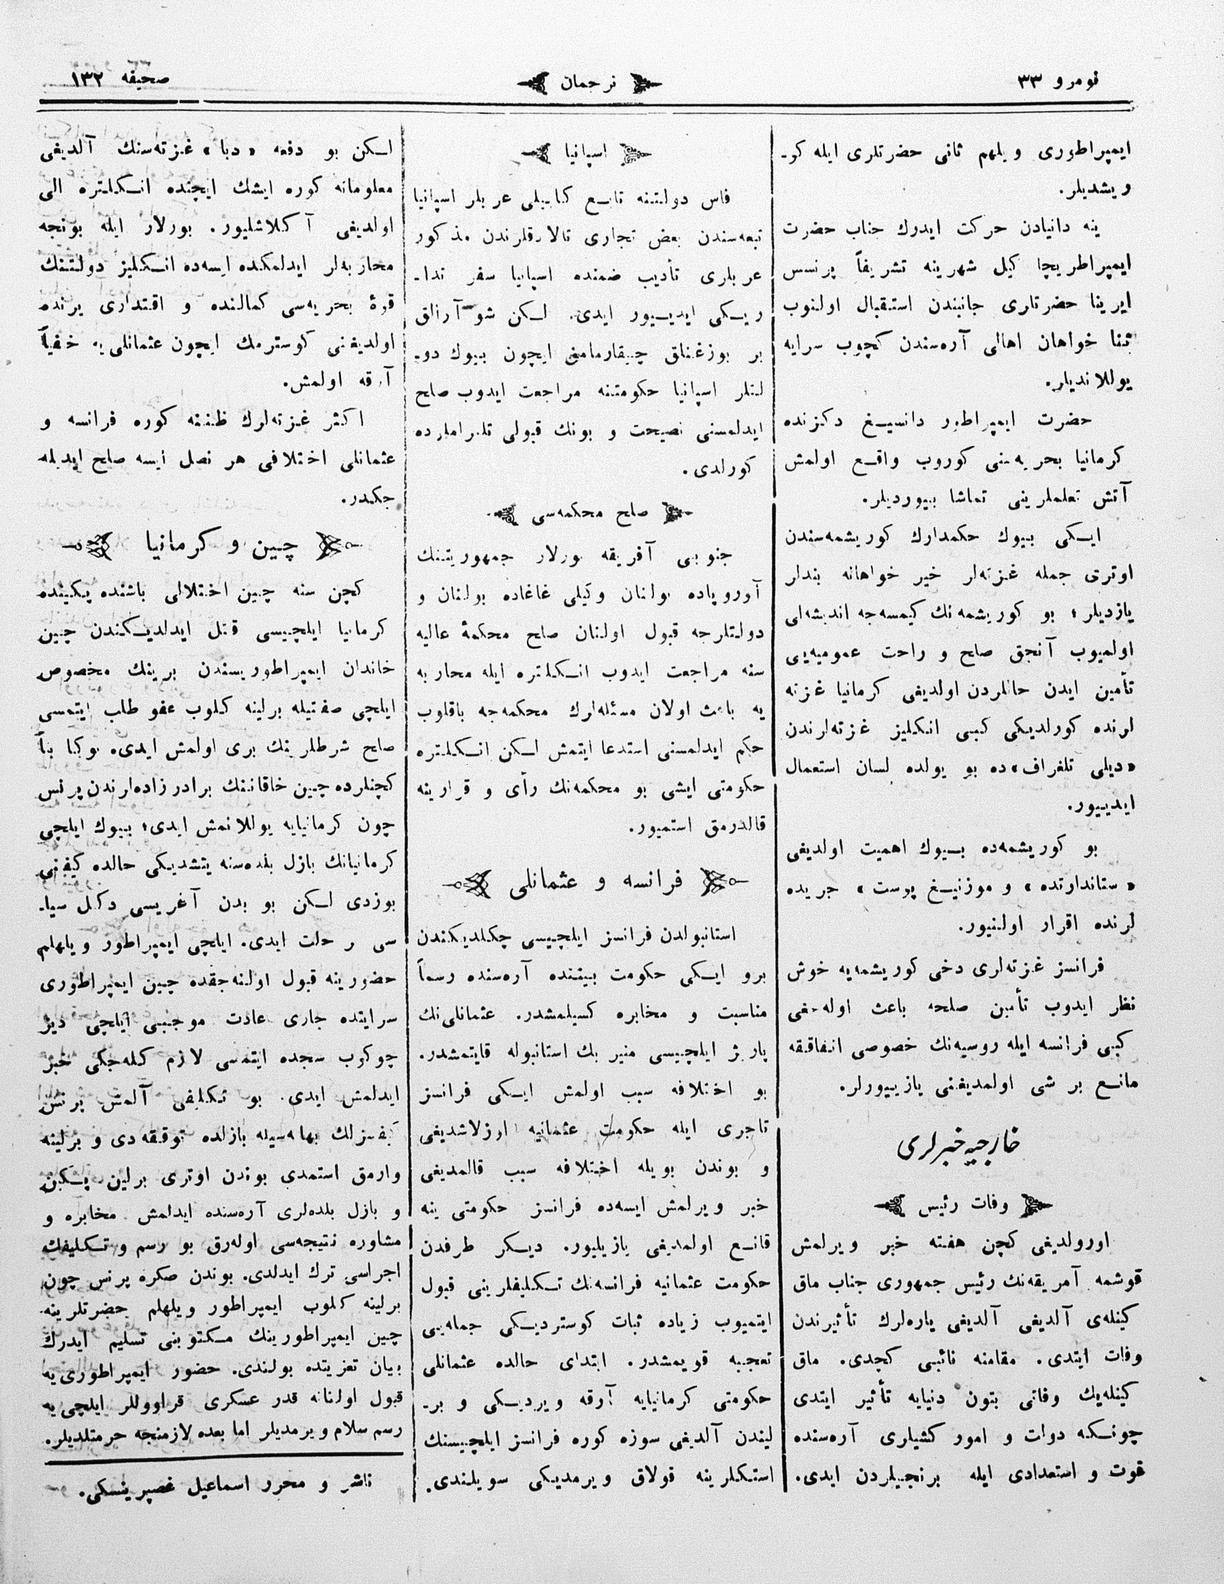 نومرو ٣٣
ترجمان
صحيفه ١٣٢
ايمپراطورى ويلهم ثانى حضرتلرى ايله كو-
ويشديلر.
ينه دانيادن حركت ايدرك جناب حضرت
ايمپراطريچا كيل شهرينه تشريفاً پرنسس
ايرينا حضرتلرى جانبندن استقبال اولنوب
ثنا خواهان اهالى آره‌سندن كچوب سرايه
يوللانديلر.
حضرت ايمپراطور دانسيغ دكزنده
كرمانيا بحريه‌سنى كوروب واقع اولمش
آتش تعلملرينى تماشا بيورديلر.
ايكى بيوك حكمدارك كوريشمه‌سندن
اوترى جمله غزته‌لر خير خواهانه بندلر
يازديلر؛ بو كوريشمه‌نك كيمسه‌جه انديشه‌لى
اولميوب آنجق صلح و راحت عموميه‌يى
تأمين ايدن حاللردن اولديغى كرمانيا غزته
لرنده كورلديكى كبى انكليز غزته‌لرندن
«ديلى تلغراف»ده بو يولده لسان استعمال
ايدييور.
بو كوريشمه‌ده بيوك اهميت اولديغى
«ستاندارتده» و موزنيغ پوست» جريده
لرنده اقرار اولنيور.
فرانسز غزته‌لرى دخى كوريشمه‌يه خوش
نظر ايدوب تأمين صلحه باعث اوله‌جغى
كبى فرانسه ايله روسيه‌نك خصوصى اتفاقنه
مانع بر شى اولمديغنى يازييورلر.
خارجيه خبرلرى
وفات رئيس
اورولديغى كچن هفته خبر ويرلمش
قوشمه آمريقه‌نك رئيس جمهورى جناب ماق
كينله‌ى آلديغى آلديغى ياره‌لرك تأثيرندن
وفات ايتدى. مقامنه نائبى كچدى. ماق
كينله‌يك وفاتى بتون دنيايه تأثير ايتدى
چونكه دولت و امور كشيلرى آره‌سنده
قوت و استعدادى ايله برنجيلردن ايدى.
اسپانيا
فاس دولتنه تابع كابيلى عربلر اسپانيا
تبعه‌سندن بعض تجارى تالارقلرندن مذكور
عربلرى تأديب ضمنده اسپانيا سفر تدا-
ريكى ايدييور ايدى. لكن شو آرالق
بر بوزغنلق چيقارمامق ايچون بيوك دو-
لتلر اسپانيا حكومتنه مراجعت ايدوب صلح
ايدلمسنى نصيحت و بونك قبولى تلغراملرده
كورلدى.
صلح محكمه‌سى
جنوبى آفريقه بورلار جمهوريتنك
آوروپاده بولنان وكيلى غاغاده بولنان و
دولتلرجه قبول اولنان صلح محكمۀ عاليه
سنه مراجعت ايدوب انكلتره ايله محاربه
يه باعث اولان مسئله‌لرك محكمه‌جه باقلوب
حكم ايدلمسنى استدعا ايتمش لكن انكلتره
حكومتى ايشى بو محكمه‌نك رأى و قرارينه
قالدرمق استميور.
فرانسه و عثمانلى
استانبولدن فرانسز ايلچيسى چكلديكندن
برو ايكى حكومت بيننده آره‌سنده رسماً
مناسبت و مخابره كسيلمشدر. عثمانلى‌نك
پاريژ ايلچيسى منير بك استانبوله قايتمشدر.
بو اختلافه سبب اولمش ايكى فرانسز
تاجرى ايله حكومت عثمانيه اوزلاشديغى
و بوندن بويله اختلافه سبب قالمديغى
خبر ويرلمش ايسه‌ده فرانسز حكومتى ينه
قانع اولمديغى يازيليور. ديكر طرفدن
حكومت عثمانيه فرانسه‌نك تكليفلرينى قبول
ايتميوب زياده ثبات كوسترديكى جمله‌يى
تعجبه قويمشدر. ابتداى حالده عثمانلى
حكومتى كرمانيايه آرقه ويرديكى و بر-
ليندن آلديغى سوزه كوره فرانسز ايلچيسنك
استكلرينه قولاق ويرمديكى سويلندى.
لكن بو دفعه «دبا» غزته‌سنك آلديغى
معلوماته كوره ايشك ايچنده انكلتره الى
اولديغى آكلاشليور. بورلار ايله بونجه
محاربه‌لر ايدلمكده ايسه‌ده انكليز دولتنك
قوۀ بحريه‌سى كمالنده و اقتدارى يرنده
اولديغنى كوسترمك ايچون عثمانلى‌يه خفياً
آرقه اولمش.
اكثر غزته‌لرك ظننه كوره فرانسه و
عثمانلى اختلافى هر نصل ايسه صلح ايديله
جكدر.
چين و كرمانيا
كچن سنه چين اختلالى باشنده پكينده
كرمانيا ايلچيسى قتل ايدلديكندن چين
خاندان ايمپراطوريسندن برينك مخصوص
ايلچى صفتيله برلينه كلوب عفو طلب ايتمسى
صلح شرطلرينك برى اولمش ايدى. بوكا بناً
كچنلرده چين خاقاننك برادر زاده‌لرندن پرنس
چون كرمانيايه يوللانمش ايدى؛ بيوك ايلچى
كرمانيانك بازل بلده‌سنه يتشديكى حالده كيفنى
بوزدى لكن بو بدن آغريسى دكل سيا-
سى ر حلت ايدى. ايلچى ايمپراطور ويلهلم
حضورينه قبول اولنه‌جقده چين ايمپراطورى
سراينده جارى عادت موجبى ايلچى ديز
چوكوب سجده ايتمسى لازم كله‌جكى خبر
ايدلمش ايدى. بو تكليفى آلمش پرنس
كيفسزلك بهانه‌سيله بازلده توقفه‌دى و برلينه
وارمق استمدى بوندن اوترى برلين پكين
و بازل بلده‌لرى آره‌سنده ايدلمش مخابره و
مشاوره نتيجه‌سى اوله‌رق بو رسم و تكليفك
اجراسى ترك ايدلدى. بوندن صكره پرنس چون
برلينه كلوب ايمپراطور ويلهلم حضرتلرينه
چين ايمپراطورينك مكتوبنى تسليم ايدرك
بيان تعزيتده بولندى. حضور ايمپراطورى‌يه
قبول اولنانه قدر عسكرى قراووللر ايلچى‌يه
رسم سلام ويرمديلر اما بعده لازمنجه حرمتلديلر.
ناشر و محرر اسماعيل غصپرينسكى.